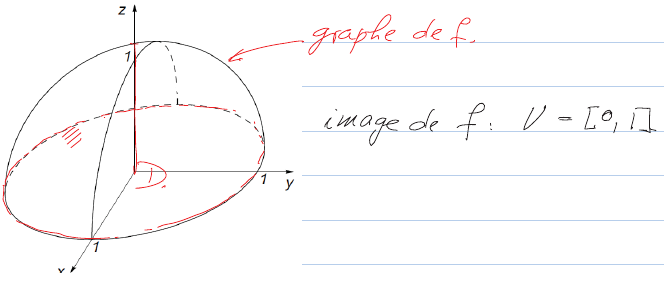 z
graphe de f.
1
image de f : V = [0, 1]
1
y
1
x